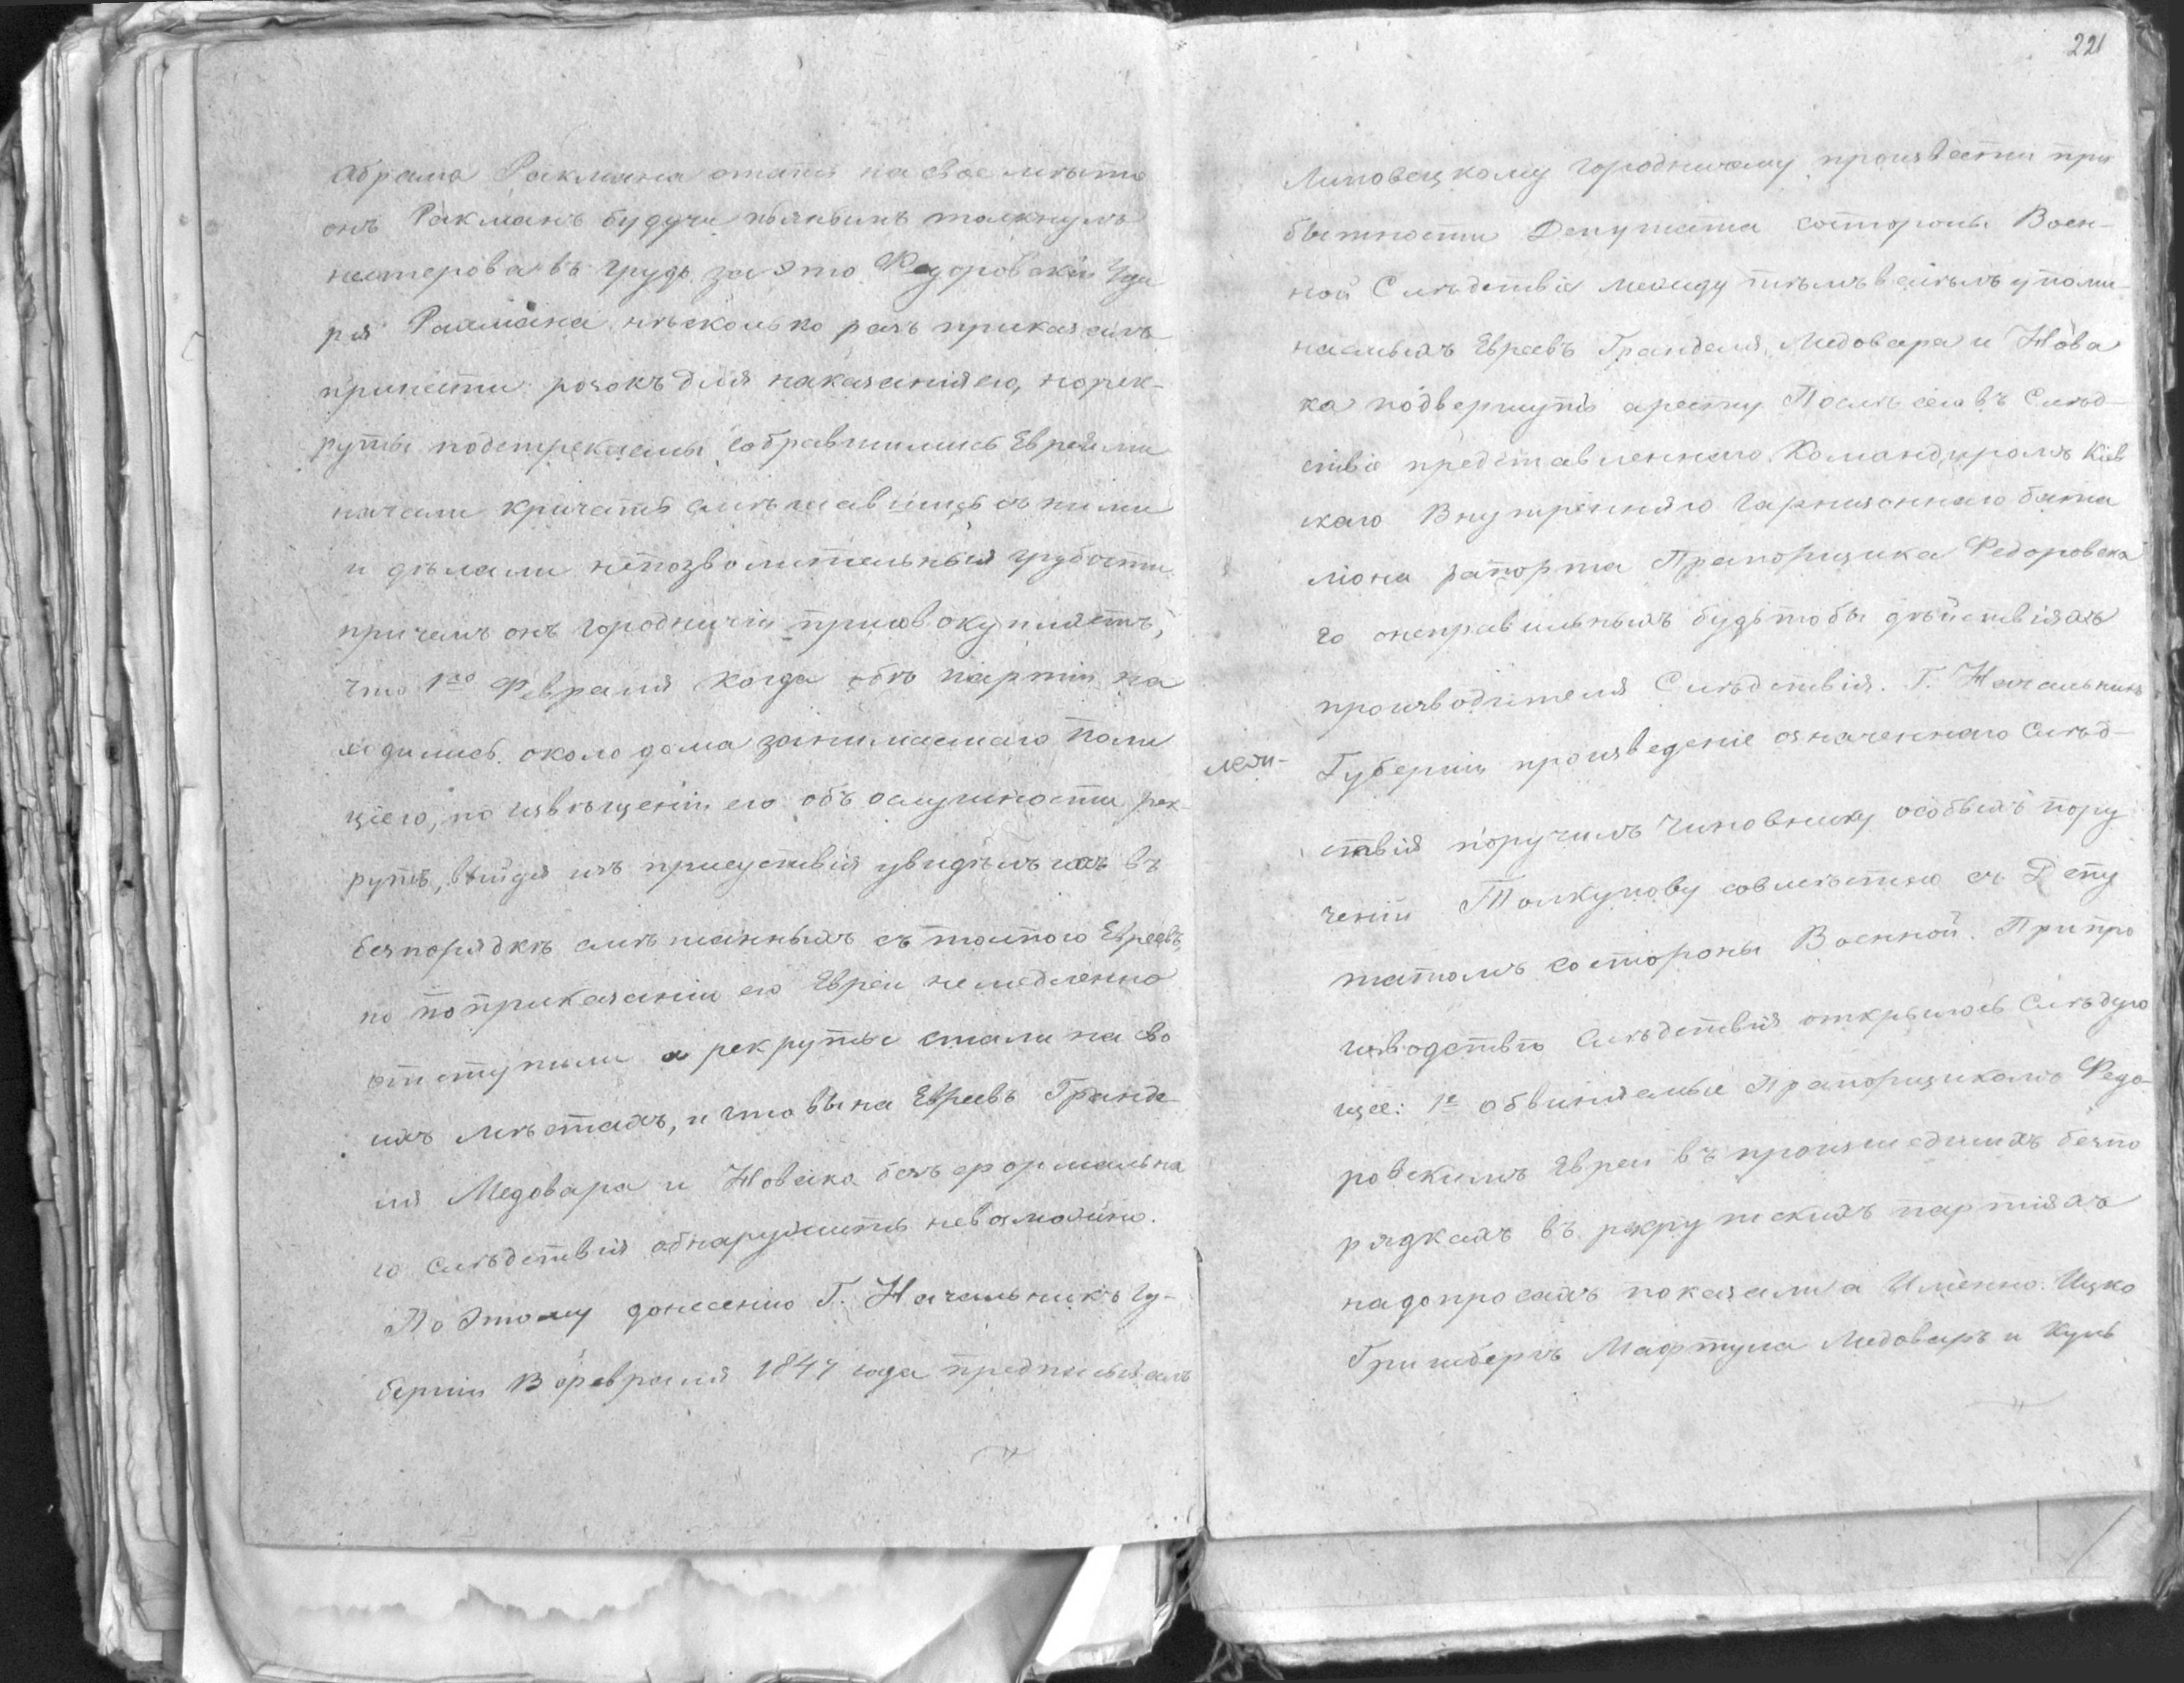 Абрама Ракмана стать на свое мѣсто
онъ Ракманъ будучи пьянымъ толкнулъ
нестерова въ грудь за это Федоровскій Уда
ря Ракмана нѣсколько разъ приказалъ
принести розокъ для наказанія его, но рек-
руты подстрекаемы собравшимись Евреями
начали кричать смѣшавшись съ ними
и дѣлали непозволительныя грубости
причемъ онъ городничій присовокупляетъ,
что 1го Февраля когда обѣ партіи на
ходились около дома занимаемаго Поли
ціею, по извѣщеніи его объ ослушности рек-
рутъ, выйдя изъ присутствія увидѣлъ ихъ въ
безпорядкѣ смѣшанныхъ съ толпою Евреевъ,
но по приказанію его Евреи немедленно
отступили а рекруты стали на сво
ихъ мѣстахъ, и что вина Евреевъ Гранде-
ля Медовара и Новака безъ формальна
го слѣдствія обнаружить невозможно.
По этому донесенію Г. Начальникъ Гу-
берніи 13 февраля 1847 года предписывалъ
221
Липовецкому городничему произвести при
бытности Депутата состороны Воен-
ной Слѣдствіе между тѣмъ всѣмъ упоми-
наемыхъ Евреевъ Гранделя, Медовара и Нова
ка подвергнуть аресту Послѣ сего въ Слѣд-
ствіе представленнаго Командиромъ Кіев
скаго Внутренняго гарнизоннаго бата
ліона рапорта Прапорщика Федоровска
го онеправильныхъ будьтобы дѣйствіяхъ
производителя Слѣдствія. Г. Начальникъ
Губерніи произведеніе означеннаго Слѣд-
ствія поручилъ Чиновнику особыхъ пору
ченій Толкунову совмѣстно съ Депу
татомъ состороны Военной. При про
изводствѣ Слѣдствія открылось Слѣдую
щее: 1е обвиняемые Прапорщикомъ Федо-
ровскимъ Евреи въ произшедшихъ безпо
рядкахъ въ рекрутскихъ партіяхъ
надопросахъ показали а Именно. Ицко
Гринбергъ Мафтула Медоваръ и Кунь